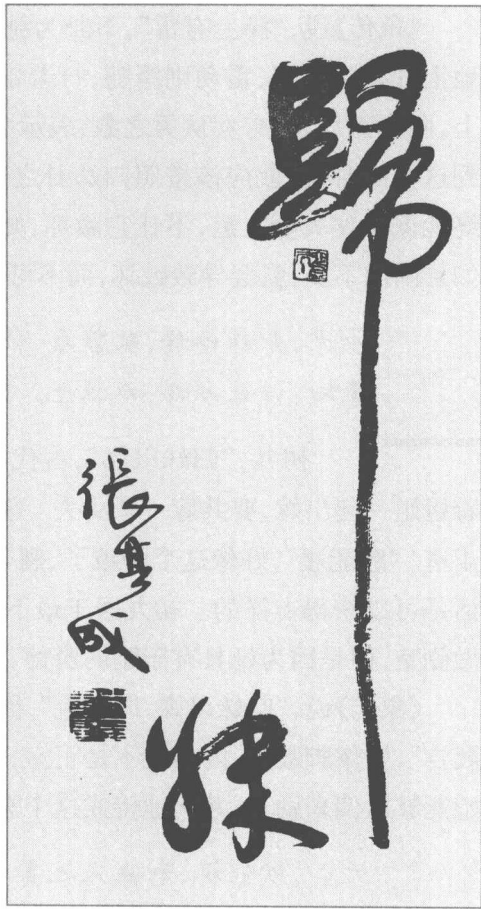 歸妹
張其成